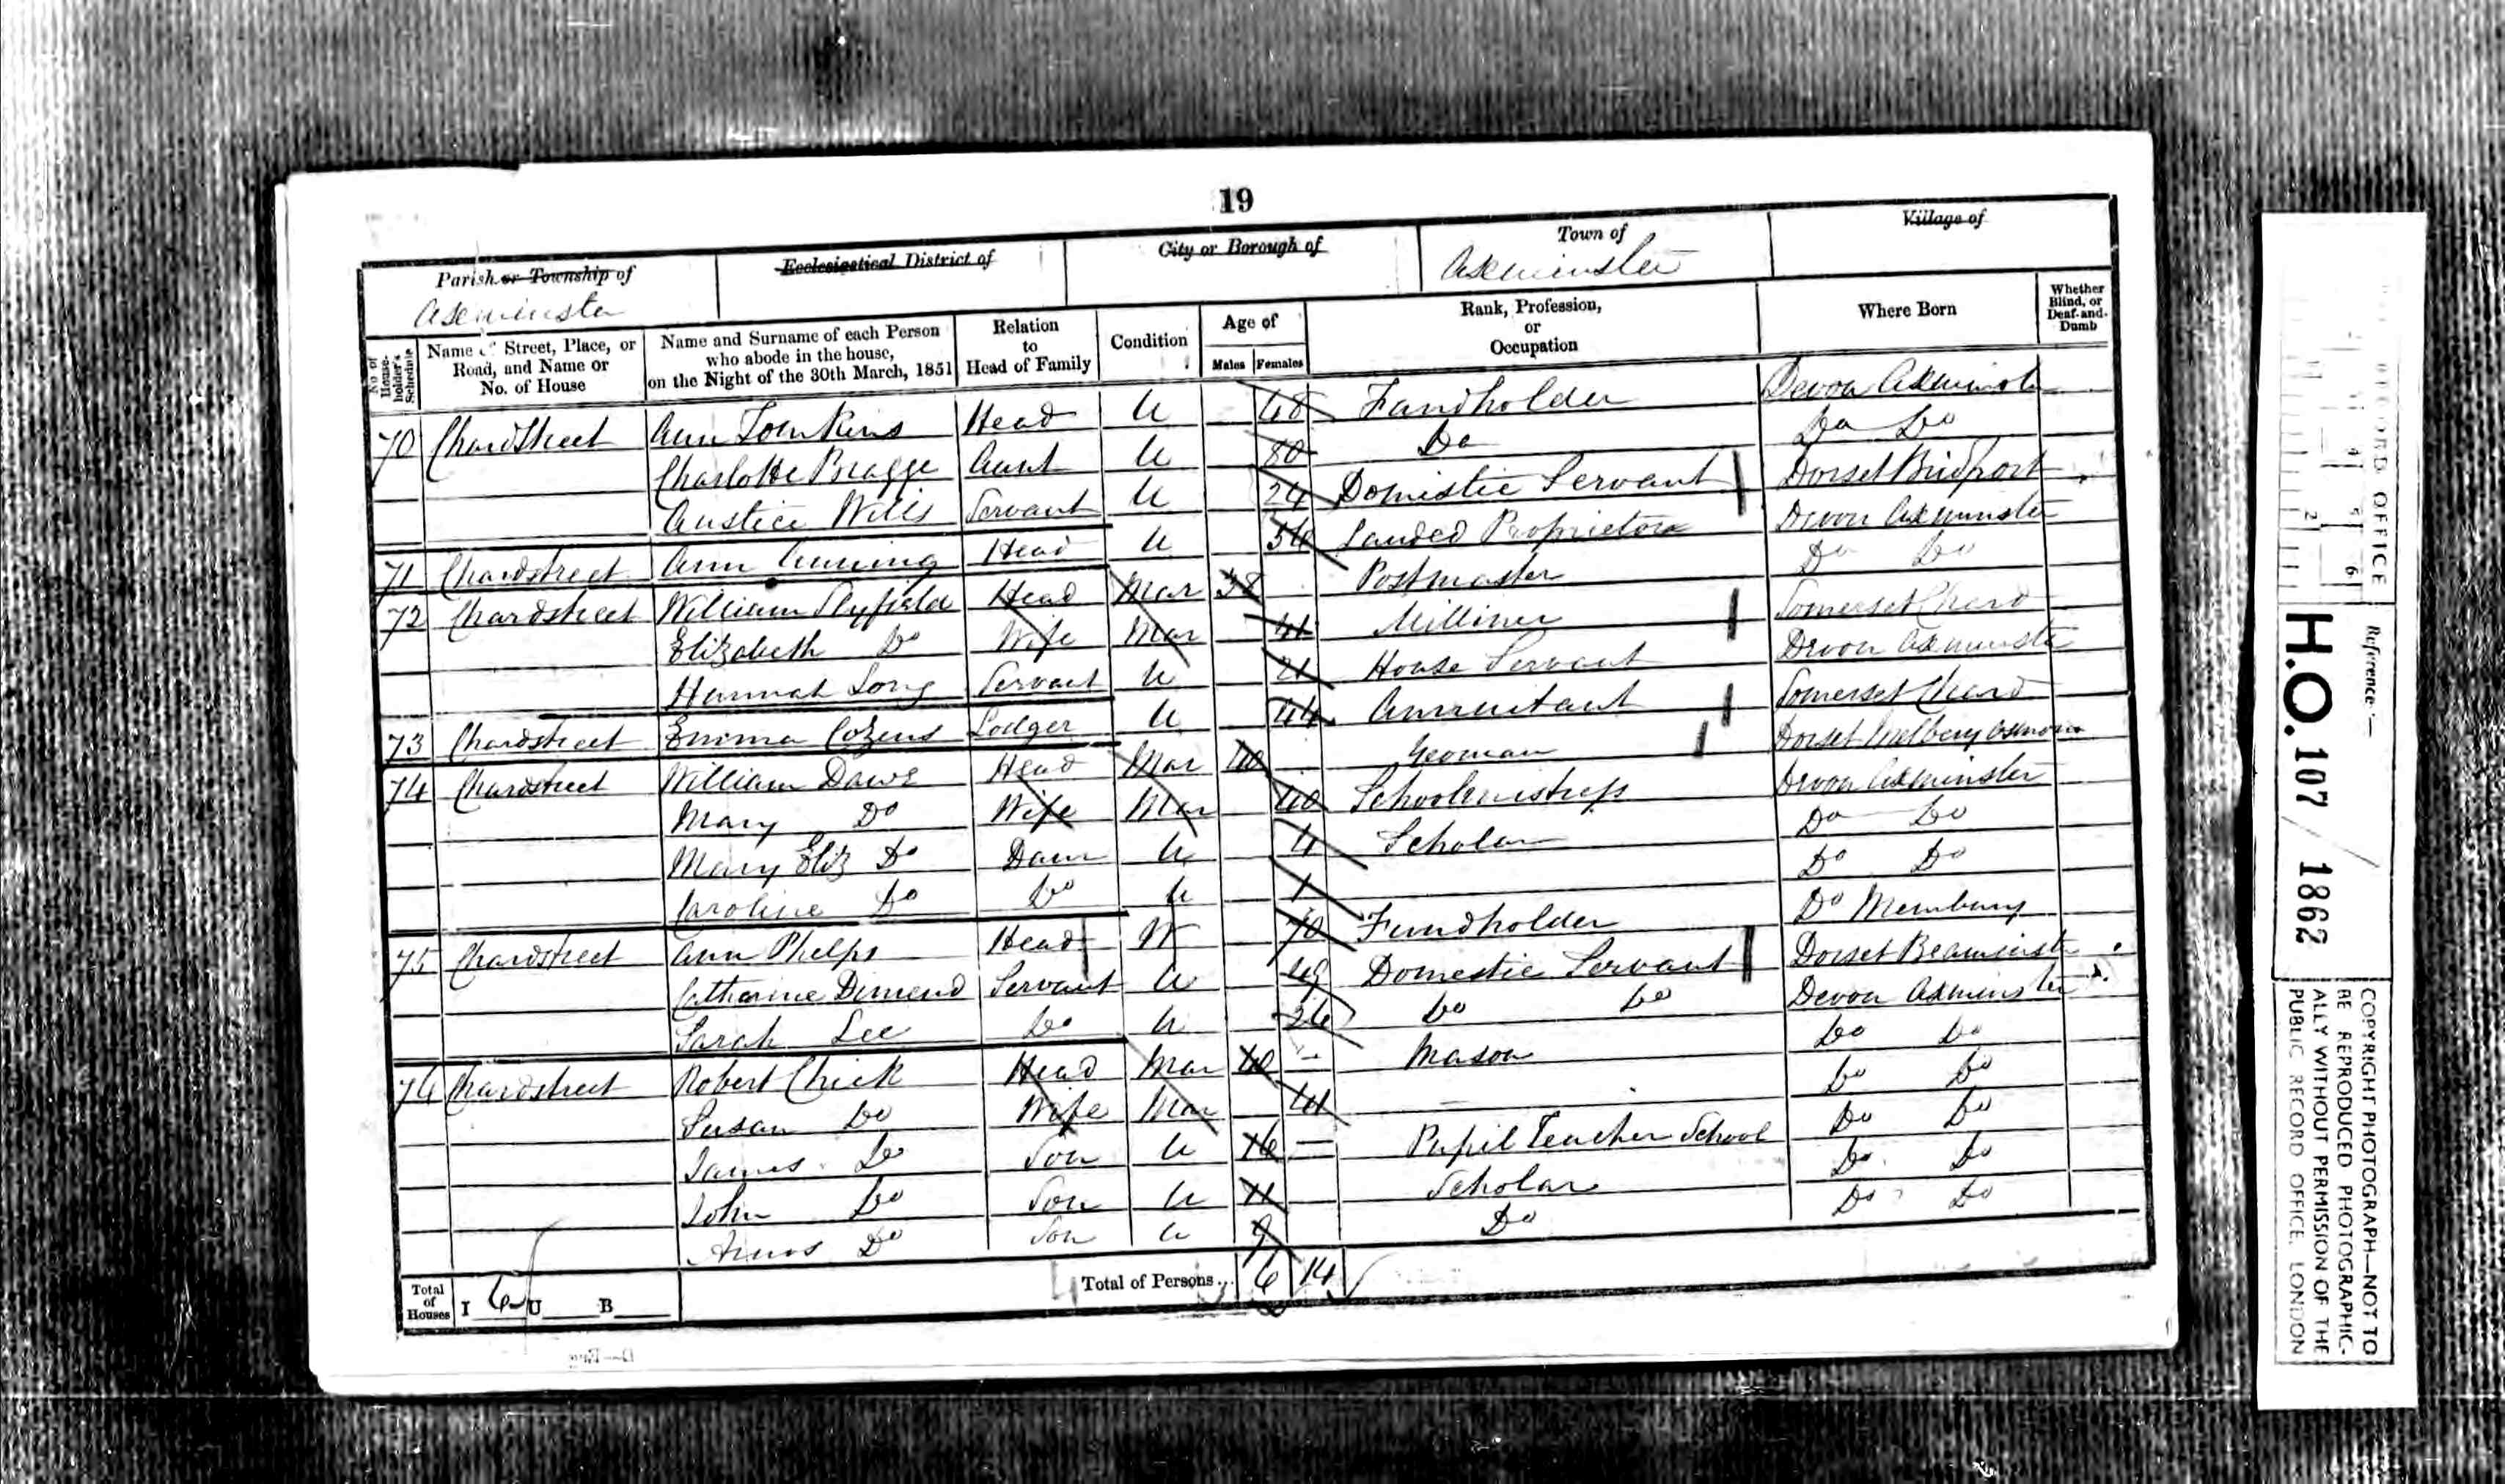 19
Parish or Township of
Axminster
Ecclesiastical District of
City or Borough of
Town of
Axminster
Village of
No. of House-holder's Schedule
Name of Street, Place, or Road, and Name or No. of House
Name and Surname of each Person who abode in the house, on the Night of the 30th March, 1851
Relation to Head of Family
Condition
Age of
Males Females
Rank, Profession, or Occupation
Where Born
Whether Blind, or Deaf-and-Dumb
70 Chardstreet Ann Tomkins Head U 48 Fundholder Devon Axminster
Charlotte Bragge Aunt U 80 Do Do Do
Austice Wills Servant U 24 Domestic Servant Dorset Bridport
71 Chardstreet Ann Head U Landed Proprietor Devon Axminster
72 Chardstreet William Slyfield Head Mar 38 Postmaster Do Do
Elizabeth Do Wife Mar 41 Milliner Somerset Chard
Hannah Long Servant U 21 House Servant Devon Axminster
73 Chardstreet Emma Cozens Lodger U 44 Annuitant Somerset Chard
74 Chardstreet William Dawe Head Mar 40 Yeoman Dorset Melbury Osmond
Mary Do Wife Mar 40 Schoolmistress Devon Axminster
Mary Eliz Do Daur U 4 Scholar Do Do
Caroline Do Do U 1 Do Do
75 Chardstreet Ann Phelps Head W 70 Fundholder Do Membury
Catharine Dimend Servant U 49 Domestic Servant Dorset Beaminster
Sarah Lee Do U 26 Do Do Devon Axminster
76 Chardstreet Robert Chick Head Mar 40 — Mason Do Do
Susan Do Wife Mar 41 Do Do
James Do Son U 16 — Pupil Teacher School Do Do
John Do Son U 11 Scholar Do Do
Amos Do Son U 9 Do Do Do
Total of Houses I 6 U B Total of Persons... 6 14
RECORD OFFICE
2
4 5 6
Reference:—
H.O. 107 / 1862
COPYRIGHT PHOTOGRAPH—NOT TO
BE REPRODUCED PHOTOGRAPHIC-
ALLY WITHOUT PERMISSION OF THE
PUBLIC RECORD OFFICE, LONDON